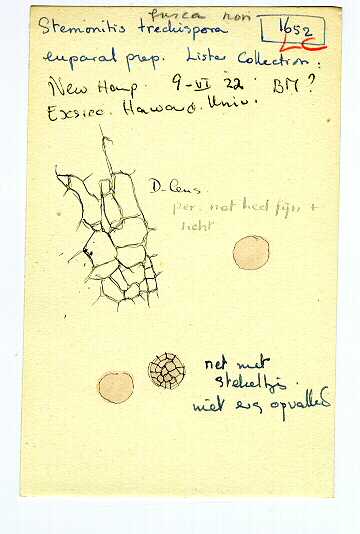 fusca non
Stemonitis trechispora
1652
LC
euparal prep. Lister Collection.
New Hamp. 9-VI 22 BM?
Exsicc. Harvard. Univ.
D-Lens.
per. net heel fijn +
licht
net met
stekeltjes.
niet erg opvallend